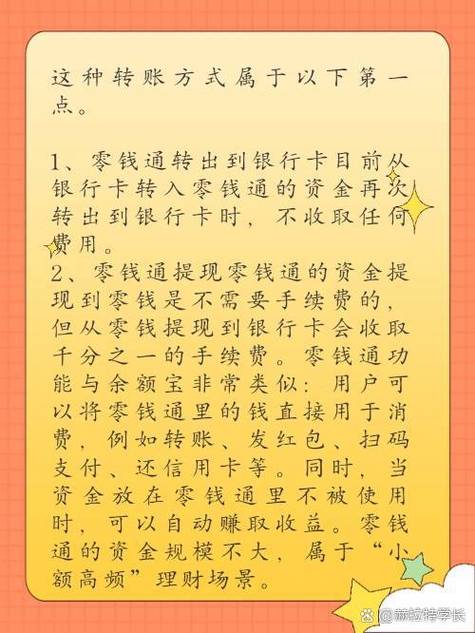 这种转账方式属于以下第一
点。
1、零钱通转出到银行卡目前从
银行卡转入零钱通的资金再次
转出到银行卡时，不收取任何
费用。
2、零钱通提现零钱通的资金提
现到零钱是不需要手续费的，
但从零钱提现到银行卡会收取
千分之一的手续费。零钱通功
能与余额宝非常类似：用户可
以将零钱通里的钱直接用于消
费，例如转账、发红包、扫码
支付、还信用卡等。同时，当
资金放在零钱通里不被使用
时，可以自动赚取收益。零钱
通的资金规模不大，属于“小
额高频”理财场景。
@赫拉特学长